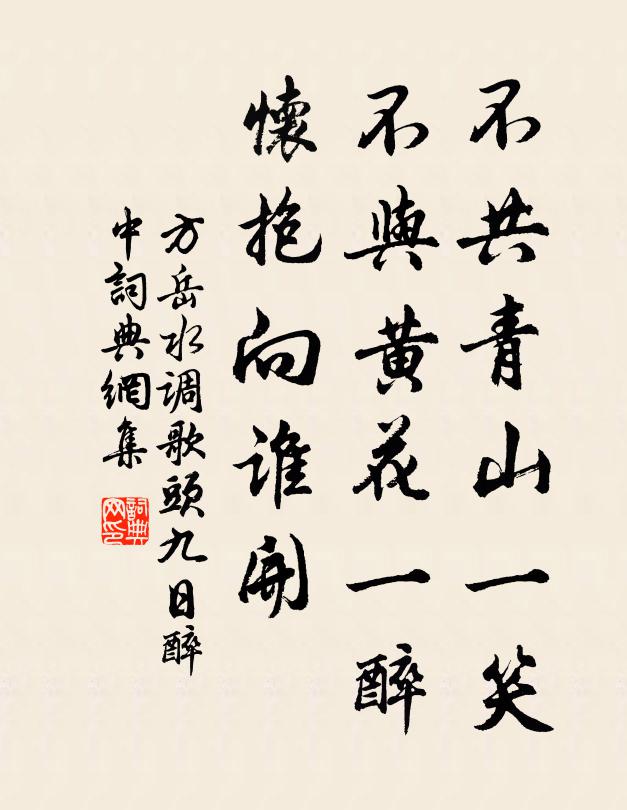 不共青山一笑
不與黄花一醉
懷抱向誰開
方岳水调歌頭九日醉
中詞典網集
詞典网印